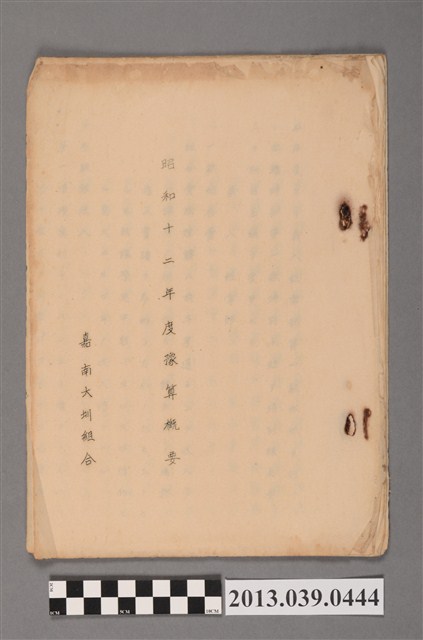 昭和十二年度豫算概要
嘉南大圳組合
2013.039.0444